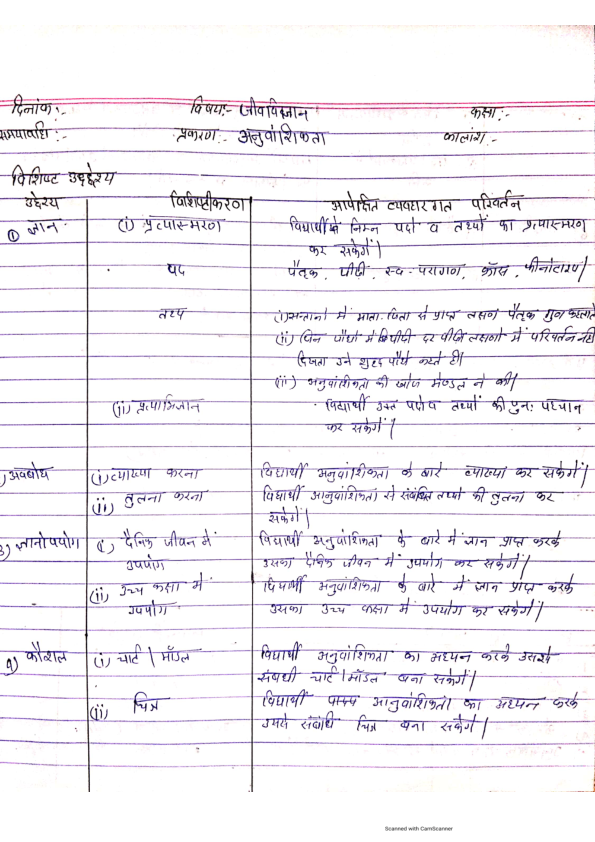 दिनांक :-		विषय:- जीवविज्ञान		कक्षा :-
समयावधि :-		प्रकरण :- अनुवांशिकता		कालांश :-
विशिष्ट उद्देश्य
उद्देश्य	विशिष्टीकरण	अपेक्षित व्यवहारगत परिवर्तन
① ज्ञान -	(i) प्रत्यास्मरण	विद्यार्थी निम्न पदों व तथ्यों का प्रत्यास्मरण
कर सकेंगे |
पद	पैतृक, पीढ़ी, स्व-परागण, क्रॉस, फीनोटाइप |
तथ्य	(i) सन्तानों में माता-पिता से प्राप्त लक्षण पैतृक गुण कहलाते
(ii) जिन पौधों में पीढ़ी दर पीढ़ी लक्षणों में परिवर्तन नहीं
दिखता उन्हें शुद्ध पौधे कहते हैं।
(iii) अनुवांशिकता की खोज मेण्डल ने की।
(ii) प्रत्याभिज्ञान	विद्यार्थी उक्त पदों व तथ्यों की पुनः पहचान
कर सकेंगे |
) अवबोध	(i) व्याख्या करना	विद्यार्थी अनुवांशिकता के बारे व्याख्या कर सकेंगे |
(ii) तुलना करना	विद्यार्थी आनुवांशिकता से संबंधित तथ्यों की तुलना कर
सकेंगे |
3) ज्ञानोपयोग	(i) दैनिक जीवन में	विद्यार्थी अनुवांशिकता के बारे में ज्ञान प्राप्त करके
उपयोग	उसका दैनिक जीवन में उपयोग कर सकेंगे |
(ii) उच्च कक्षा में	विद्यार्थी अनुवांशिकता के बारे में ज्ञान प्राप्त करके
उपयोग	उसका उच्च कक्षा में उपयोग कर सकेंगे |
4) कौशल	(i) चार्ट | मॉडल	विद्यार्थी अनुवांशिकता का अध्ययन करके उससे
संबंधी चार्ट | मॉडल बना सकेंगे |
(ii) चित्र	विद्यार्थी आनुवांशिकता का अध्ययन करके
उससे संबंधि चित्र बना सकेंगे |
Scanned with CamScanner